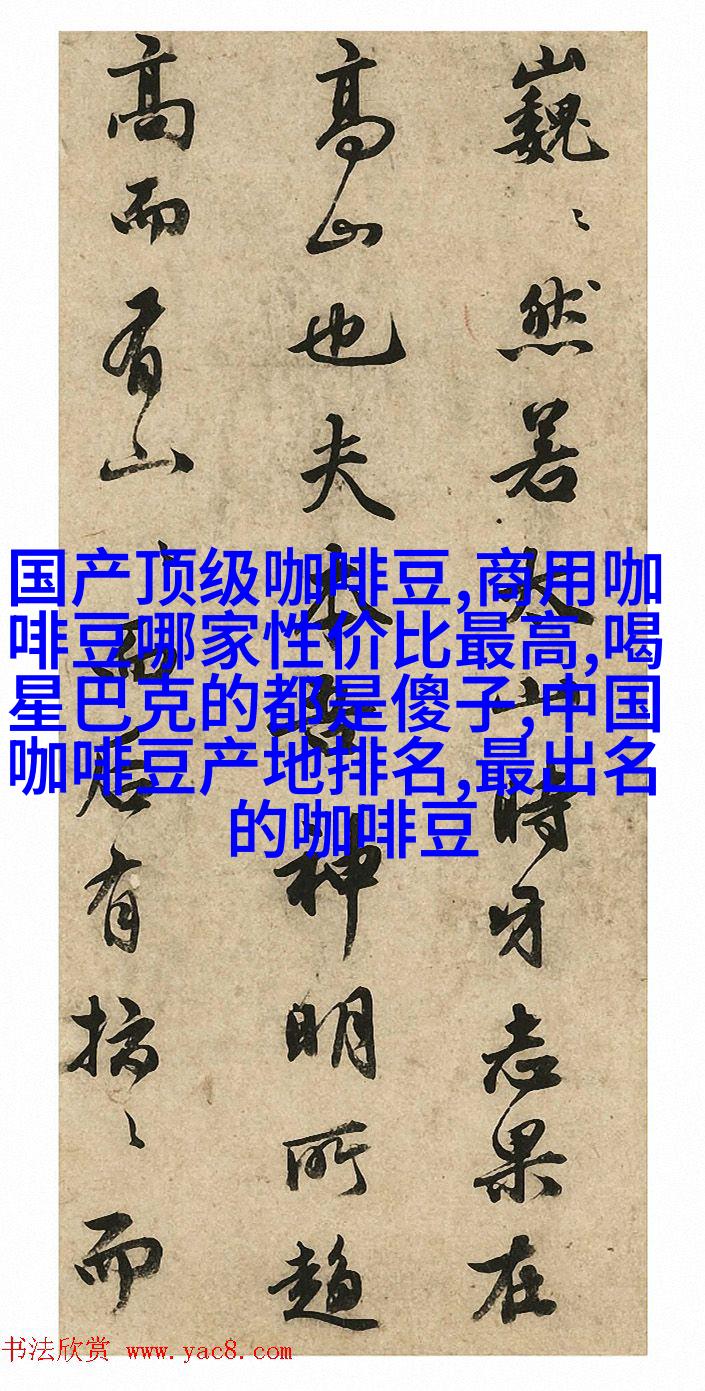 巍〻然若太山時牙志果在
高山也夫神明所趨
高而有山〻而后有〻而
国产顶级咖啡豆,商用咖
啡豆哪家性价比最高,喝
星巴克的都是傻子,中国
咖啡豆产地排名,最出名
的咖啡豆
书法欣赏 www.yac8.com